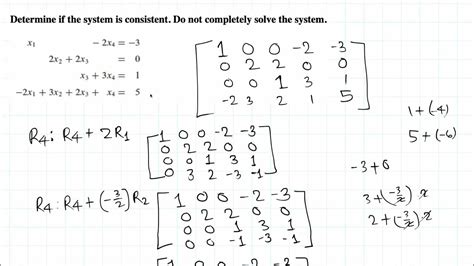 Determine if the system is consistent. Do not completely solve the system.
x₁ − 2x₄ = −3
2x₂ + 2x₃ = 0
x₃ + 3x₄ = 1
−2x₁ + 3x₂ + 2x₃ + x₄ = 5
[1 0 0 -2 -3
0 2 2 0 0
0 0 1 3 1
-2 3 2 1 5]
1 + (-4)
5 + (-6)
R₄: R₄ + 2R₁ [1 0 0 -2 -3
0 2 2 0 0
0 0 1 3 1
0 3 2 -3 -1]
-3 + 0
3 + (-3/2) 2
2 + (-3/2) · 2
R₄: R₄ + (-3/2) R₂ [1 0 0 -2 -3
0 2 2 0 0
0 0 1 3 1
0 0 -1 -3 -1]
[1 0 0 -2 -3